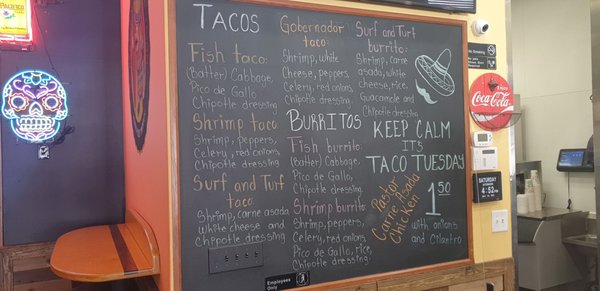 Pacifico
TACOS
Fish taco
(Batter) Cabbage,
Pico de Gallo
Chipotle dressing
Shrimp taco
Shrimp, peppers,
Celery, red onions
Chipotle dressing
Surf and Turf
taco
Shrimp, carne asada
white cheese and
Chipotle dressing
Gobernador
taco:
Shrimp, white
Cheese, peppers,
Celery, red onions,
Chipotle dressing
BURRITOS
Fish burrito:
(Batter) Cabbage,
Pico de Gallo,
Chipotle dressing
Shrimp burrito:
Shrimp, peppers,
Celery, red onions,
Pico de Gallo, rice,
Chipotle dressing
Surf and Turf
burrito:
Shrimp, carne
asada, white
cheese, rice,
Guacamole and
Chipotle dressing
KEEP CALM
ITS
TACO TUESDAY
Pastor
Carne Asada
Chicken
1.50
with onions
and Cilantro
Employees
Only
Coca-Cola
SATURDAY
4:52